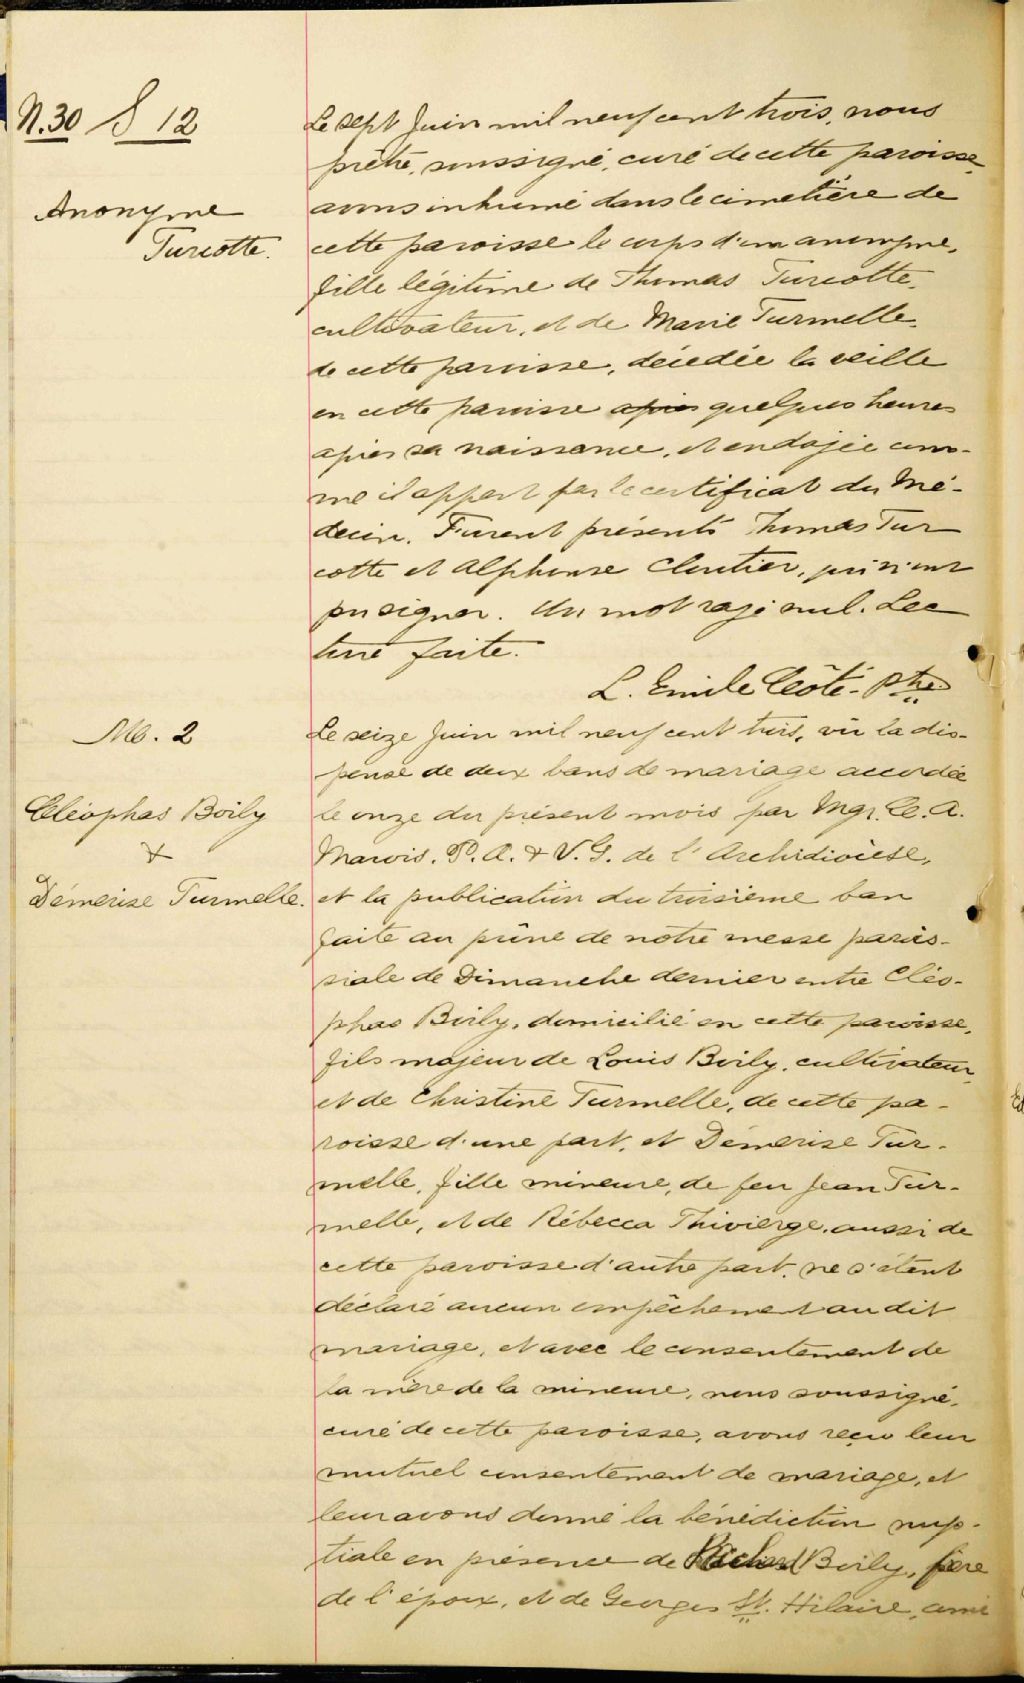 N.30 S 12
Anonyme
Turcotte.
Le sept Juin mil neuf cent trois, nous
prêtre, soussigné, curé de cette paroisse,
avons inhumé dans le cimetière de
cette paroisse le corps d'un anonyme,
fille légitime de Thomas Turcotte,
cultivateur, et de Marie Turmelle,
de cette paroisse, décédée la veille
en cette paroisse après quelques heures
après sa naissance, et ondoyée com-
me il appert par le certificat du Mé-
decin. Furent présents Thomas Tur
cotte et Alphonse Cloutier, qui n'ont
pu signer. Un mot rayé nul. Lec
ture faite.
L. Emile Côté. Ptre
M. 2
Cléophas Boily
&
Démerise Turmelle.
Le seize Juin mil neuf cent trois, vû la dis-
pense de deux bans de mariage accordée
le onze du présent mois par Mgr. C. A.
Marois. P. A. & V. G. de l'Archidiocèse,
et la publication du troisième ban
faite au prône de notre messe parois-
siale de Dimanche dernier entre Cléo-
phas Boily, domicilié en cette paroisse,
fils majeur de Louis Boily, cultivateur,
et de Christine Turmelle, de cette pa-
roisse d'une part, et Démerise Tur-
melle, fille mineure, de feu Jean Tur-
melle, et de Rébecca Thivierge, aussi de
cette paroisse d'autre part, ne s'étent
déclaré aucun empêchement au dit
mariage, et avec le consentement de
la mère de la mineure, nous soussigné,
curé de cette paroisse, avons reçu leur
mutuel consentement de mariage, et
leur avons donné la bénédiction nup-
tiale en présence de Boily, frère
de l'époux, et de Georges St. Hilaire, ami